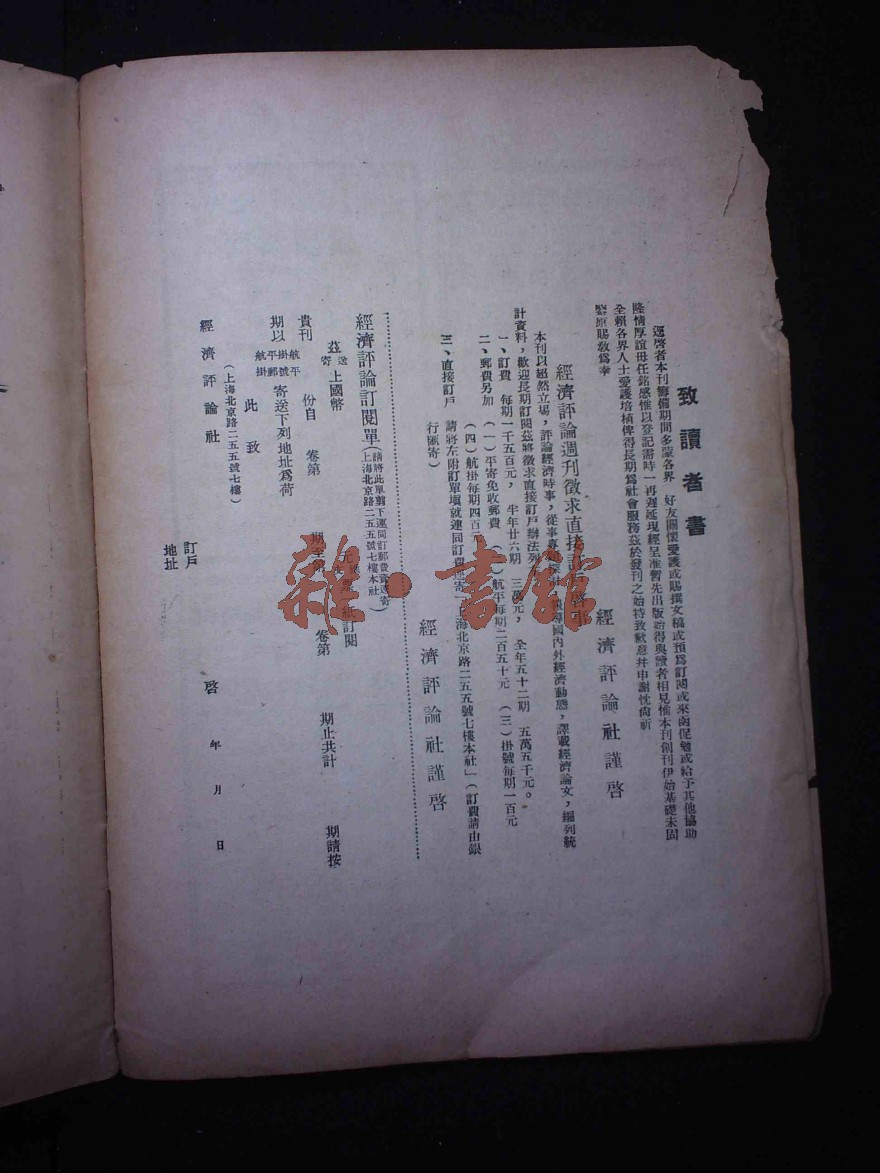 致讀者書
逕啓者本刊籌備期間多蒙各界 好友關懷愛護或賜撰文稿或預爲訂閱或來函促勉或給予其他協助
隆情厚誼毋任銘感惟以登記需時一再遲延現經呈准暫先出版始得與讀者相見惟本刊創刊伊始基礎未固
全賴各界人士愛護培植俾得長期爲社會服務茲於發刊之始特致歉意并申謝忱尚祈
鑒原賜敎爲幸
經濟評論社謹啓
經濟評論週刊徵求直接訂戶啓事
本刊以超然立場,評論經濟時事,從事 國內外經濟動態,譯載經濟論文,編列統
計資料,歡迎長期訂閱茲將徵求直接訂戶辦法列
一、訂費 每期一千五百元, 半年廿六期 三萬元, 全年五十二期 五萬五千元。
二、郵費另加 (一)平寄免收郵費 航平每期二百五十元 (三)掛號每期一百元
(四)航掛每期四百元
三、直接訂戶 請將左附訂單填就連同訂費 寄「上海北京路二五五號七樓本社」(訂費請由銀
行匯寄)
經濟評論社謹啓
經濟評論訂閱單(請將此單剪下連同訂郵費寄
上海北京路二五五號七樓本社)
茲送寄上國幣 元 訂閱
貴刊 份自 卷第 期至 卷第 期止共計 期請按
期以 平掛航航 寄號平掛 寄送下列地址爲荷
此致
經濟評論社
(上海北京路二五五號七樓)
訂戶
地址
啓
年 月 日
雜·書館